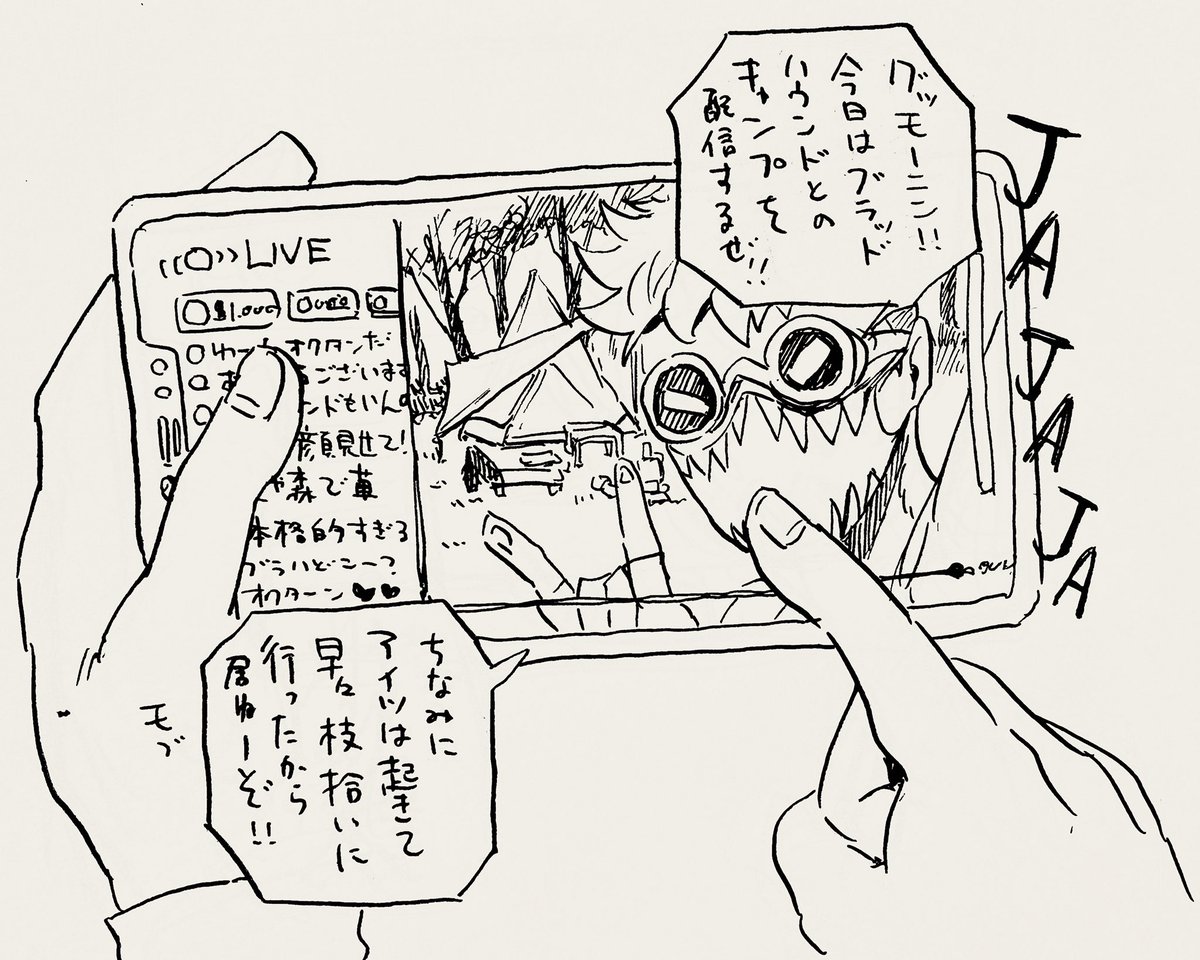 グッモーニン!!
今日はブラッド
ハウンドとの
キャンプを
配信するぜ!!
JAJAJA
LIVE
$1.000
わーオクタンだ
ございます
ンドもいん
顔見せて!
森で草
本格的すぎる
ブラハどこー?
オクターン♥♥
ちなみに
アイツは起きて
早々枝拾いに
行ったから
居ねーぞ!!
モブ